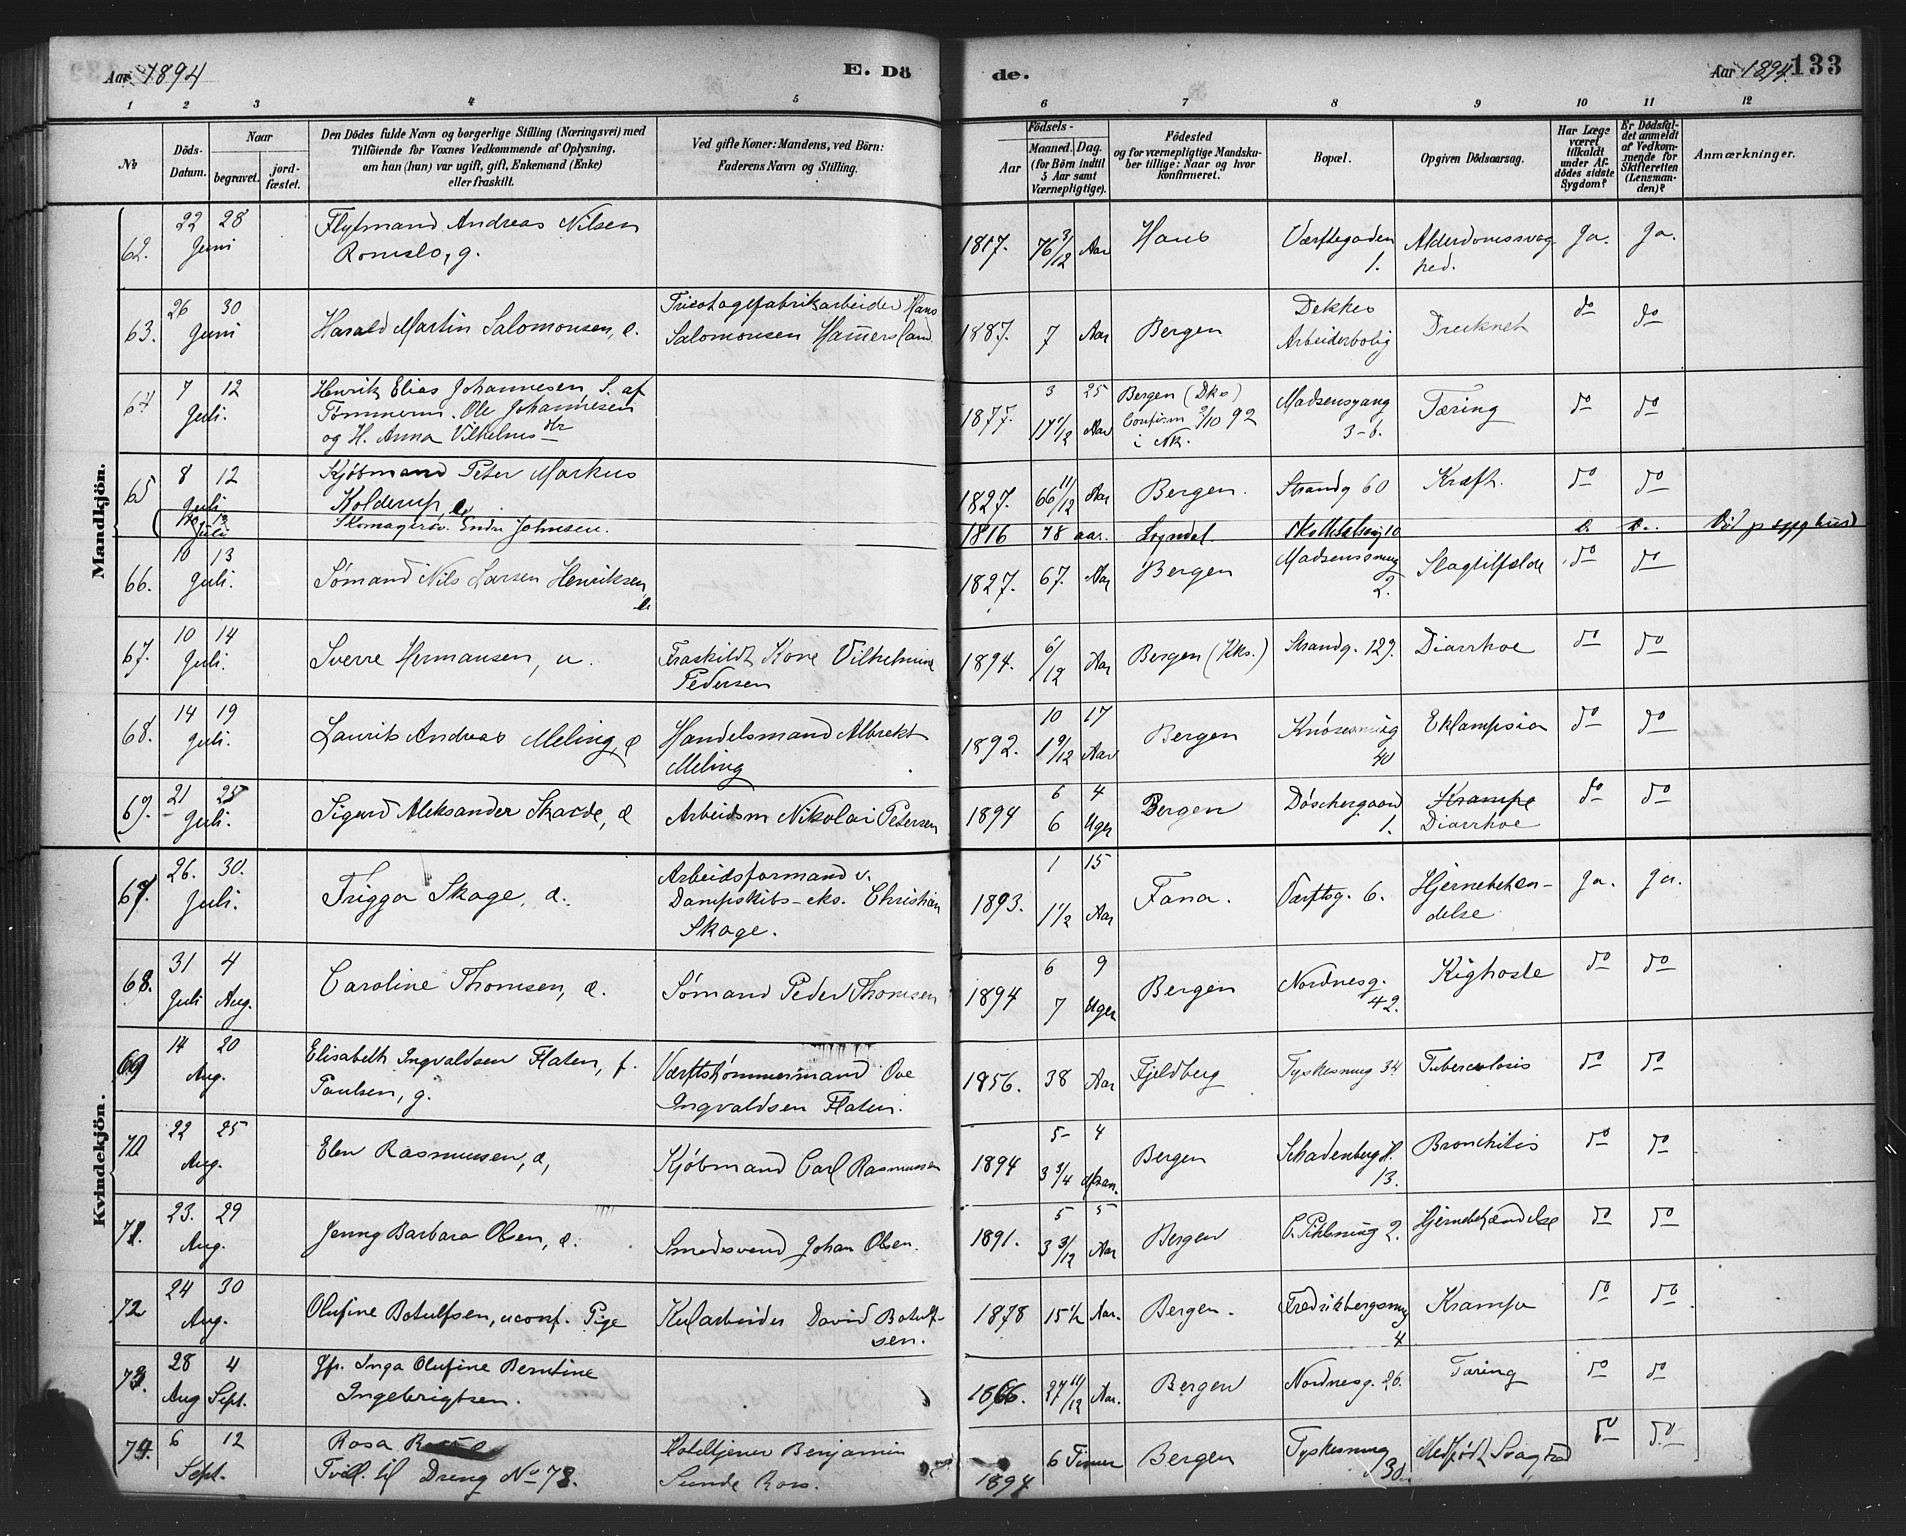 Aar 1894
E. Dö
de.
Aar 1894.
133
1 2 3 4 5 6 7 8 9 10 11 12
No
Döds-Datum.
Naar
begravet.
jord-fæstet.
Den Dödes fulde Navn og borgerlige Stilling (Næringsvei) med
Tilföiende for Voxnes Vedkommende af Oplysning,
om han (hun) var ugift, gift, Enkemand (Enke)
eller fraskilt.
Ved gifte Koner: Mandens, ved Börn:
Faderens Navn og Stilling.
Födsels-
Aar
Maaned. Dag.
(for Börn indtil
5 Aar samt
Værnepligtige).
Födested
og for værnepligtige Mandska-
ber tillige: Naar og hvor
konfirmeret.
Bopæl.
Opgiven Dödsaarsag.
Har Læge
været
tilkaldt
under Af-
dödes sidste
Sygdom?
Er Dödsfal-
det anmeldt
af Vedkom-
mende for
Skifteretten
(Lensman-
den)?
Anmærkninger.
Mandkjön.
62. 22 28 Juni Flytmand Andreas Nilsen
Romslo, g.
1817. 76 3/12 Aar Haus Værftegaden 1. Alderdomssvag
hed. Ja. Ja.
63. 26 30 Juni Harald Martin Salomonsen, e. Tricotagefabrikarbeider Hans
Salomonsen Hamersland.
1887. 7 Aar Bergen Dekkes
Arbeiderbolig Drucknet do do
64 7 12 Juli. Henrik Elias Johannesen S. af
Tømmerm. Ole Johannesen
og H. Anna Vilhelms dtr
1877. 3 25
17 1/12 Aar Bergen (Dks)
Confirm 2/10 92
i Nk. Madsensgang
3-6. Tæring do do
65 8 12 Juli Kjøbmand Peter Markus
Kolderup, e.
1827. 66 11/12 Aar Bergen. Strandg 60 Kræft. do do
Juli Skomagersv. Endre Johnsen.
1816 78 aar. Lyndal 10 Død p syghus
66. 10 13 Juli. Sømand Nils Larsen Henriksen, e.
1827. 67. Aar Bergen Madsenssmug
2. Slagtilfælde do do
67. 10 14 Juli. Sverre Hermansen, u. Fraskildt Kone Vilhelmine
Pedersen
1894. 6/12 Aar Bergen (Kks.) Strandg. 129. Diarrhoe do do
68. 14 19 Juli. Laurits Andreas Meling, e Handelsmand Albrekt
Meling
1892. 10 17
1 9/12 Aar Bergen Knøsesmug
40 Eklampsia do do
69. 21 25 Juli. Sigurd Aleksander Skarde, e Arbeidsm Nikolai Petersen
1894 6 4
6 Uger Bergen Døschergaard
1. Krampe
Diarrhoe do do
Kvindekjön.
67. 26. 30. Juli. Trigga Skage, e. Arbeidsformand v.
Dampskibs-eks. Christian
Skage.
1893. 1 15
1 1/2 Aar Fana. Værftsg. 6. Hjernebetæn-
delse Ja. Ja.
68. 31 Juli 4 Aug. Caroline Thomsen, e. Sømand Peder Thomsen
1894 6 9
7 Uger Bergen Nordnesg.
42. Kighoste do do
69 14 20 Aug. Elisabeth Ingvaldsen Flaten, f.
Paulsen, g. Værftstømmermand Ove
Ingvaldsen Flaten.
1856. 38 Aar Fjeldberg Tyskesmug 34 Tuberculosis do do
70 22 25 Aug. Elen Rasmussen, e, Kjøbmand Carl Rasmussen
1894 5 4
3 3/4 Maan. Bergen Skadenberg H.
13. Bronchitis do do
71. 23. 29 Aug. Jenny Barbara Olsen, e. Smedsvend Johan Olsen.
1891. 5 5
3 3/12 Aar Bergen C. Pihlsmug 2. Hjernebetændelse do do
72 24 30 Aug. Olufine Botulfsen, uconf. Pige Kularbeider David Botulf-
sen.
1878 15 1/2 Aar. Bergen. Fredrikbergsmug
4 Krampe do do
73. 28 Aug 4 Sept. Jfr. Inga Olufine Berntine
Ingebrigtsen.
1866. 27 11/12 Aar. Bergen Nordnesg. 26. Tæring do do
74. 6 12 Sept. Rosa
Tvill. til Dreng No 78. Hoteltjener Benjamin
Sunde Ross.
1894 6 Timer Bergen Tyskesmug
30. Medfødt Svaghed do do